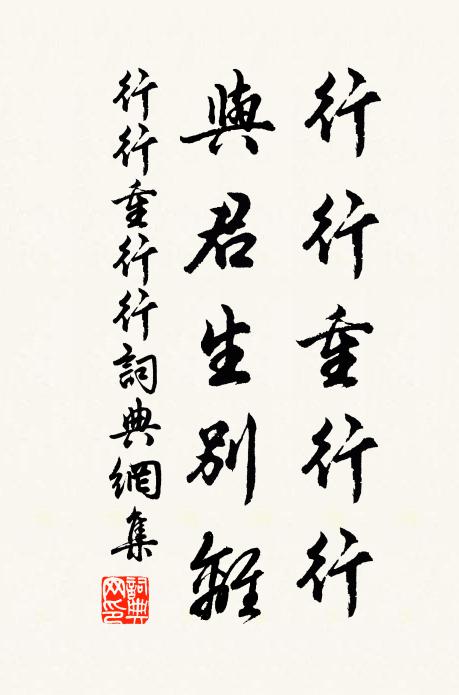 行行重行行
與君生別離
行行重行行詞典網集
詞典
网印